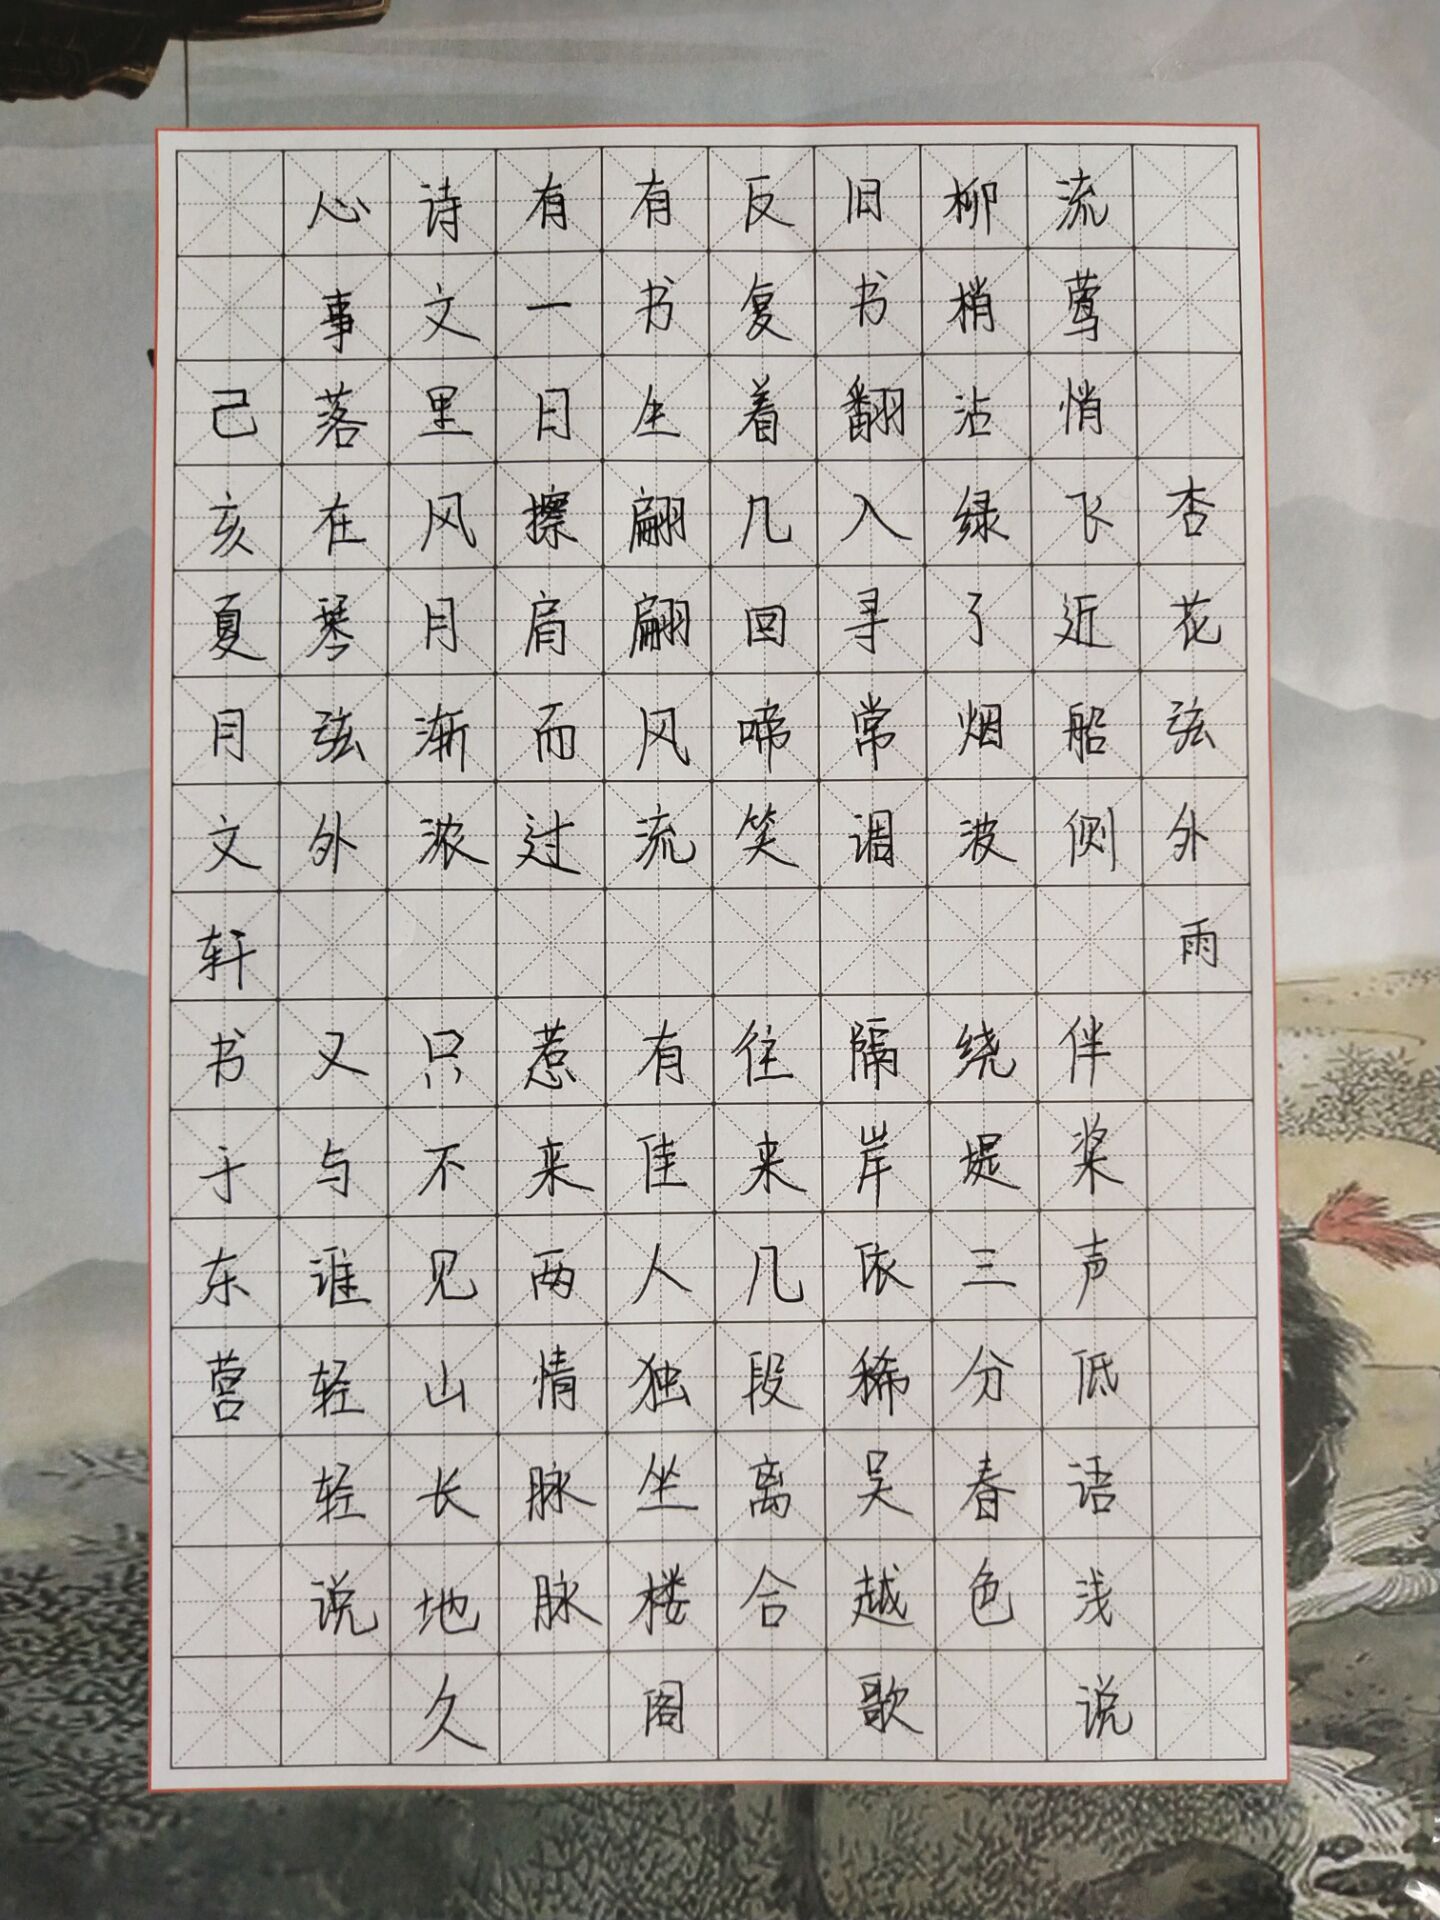 杏花弦外雨
流莺悄飞近船侧 伴桨声低语浅说
柳梢沾绿了烟波 绕堤三分春色
旧书翻入寻常调 隔岸依稀吴越歌
反复着几回啼笑 往来几段离合
有书生翩翩风流 有佳人独坐楼阁
有一日擦肩而过 惹来两情脉脉
诗文里风月渐浓 只不见山长地久
心事落在琴弦外 又与谁轻轻说
己亥夏月文轩书于东营